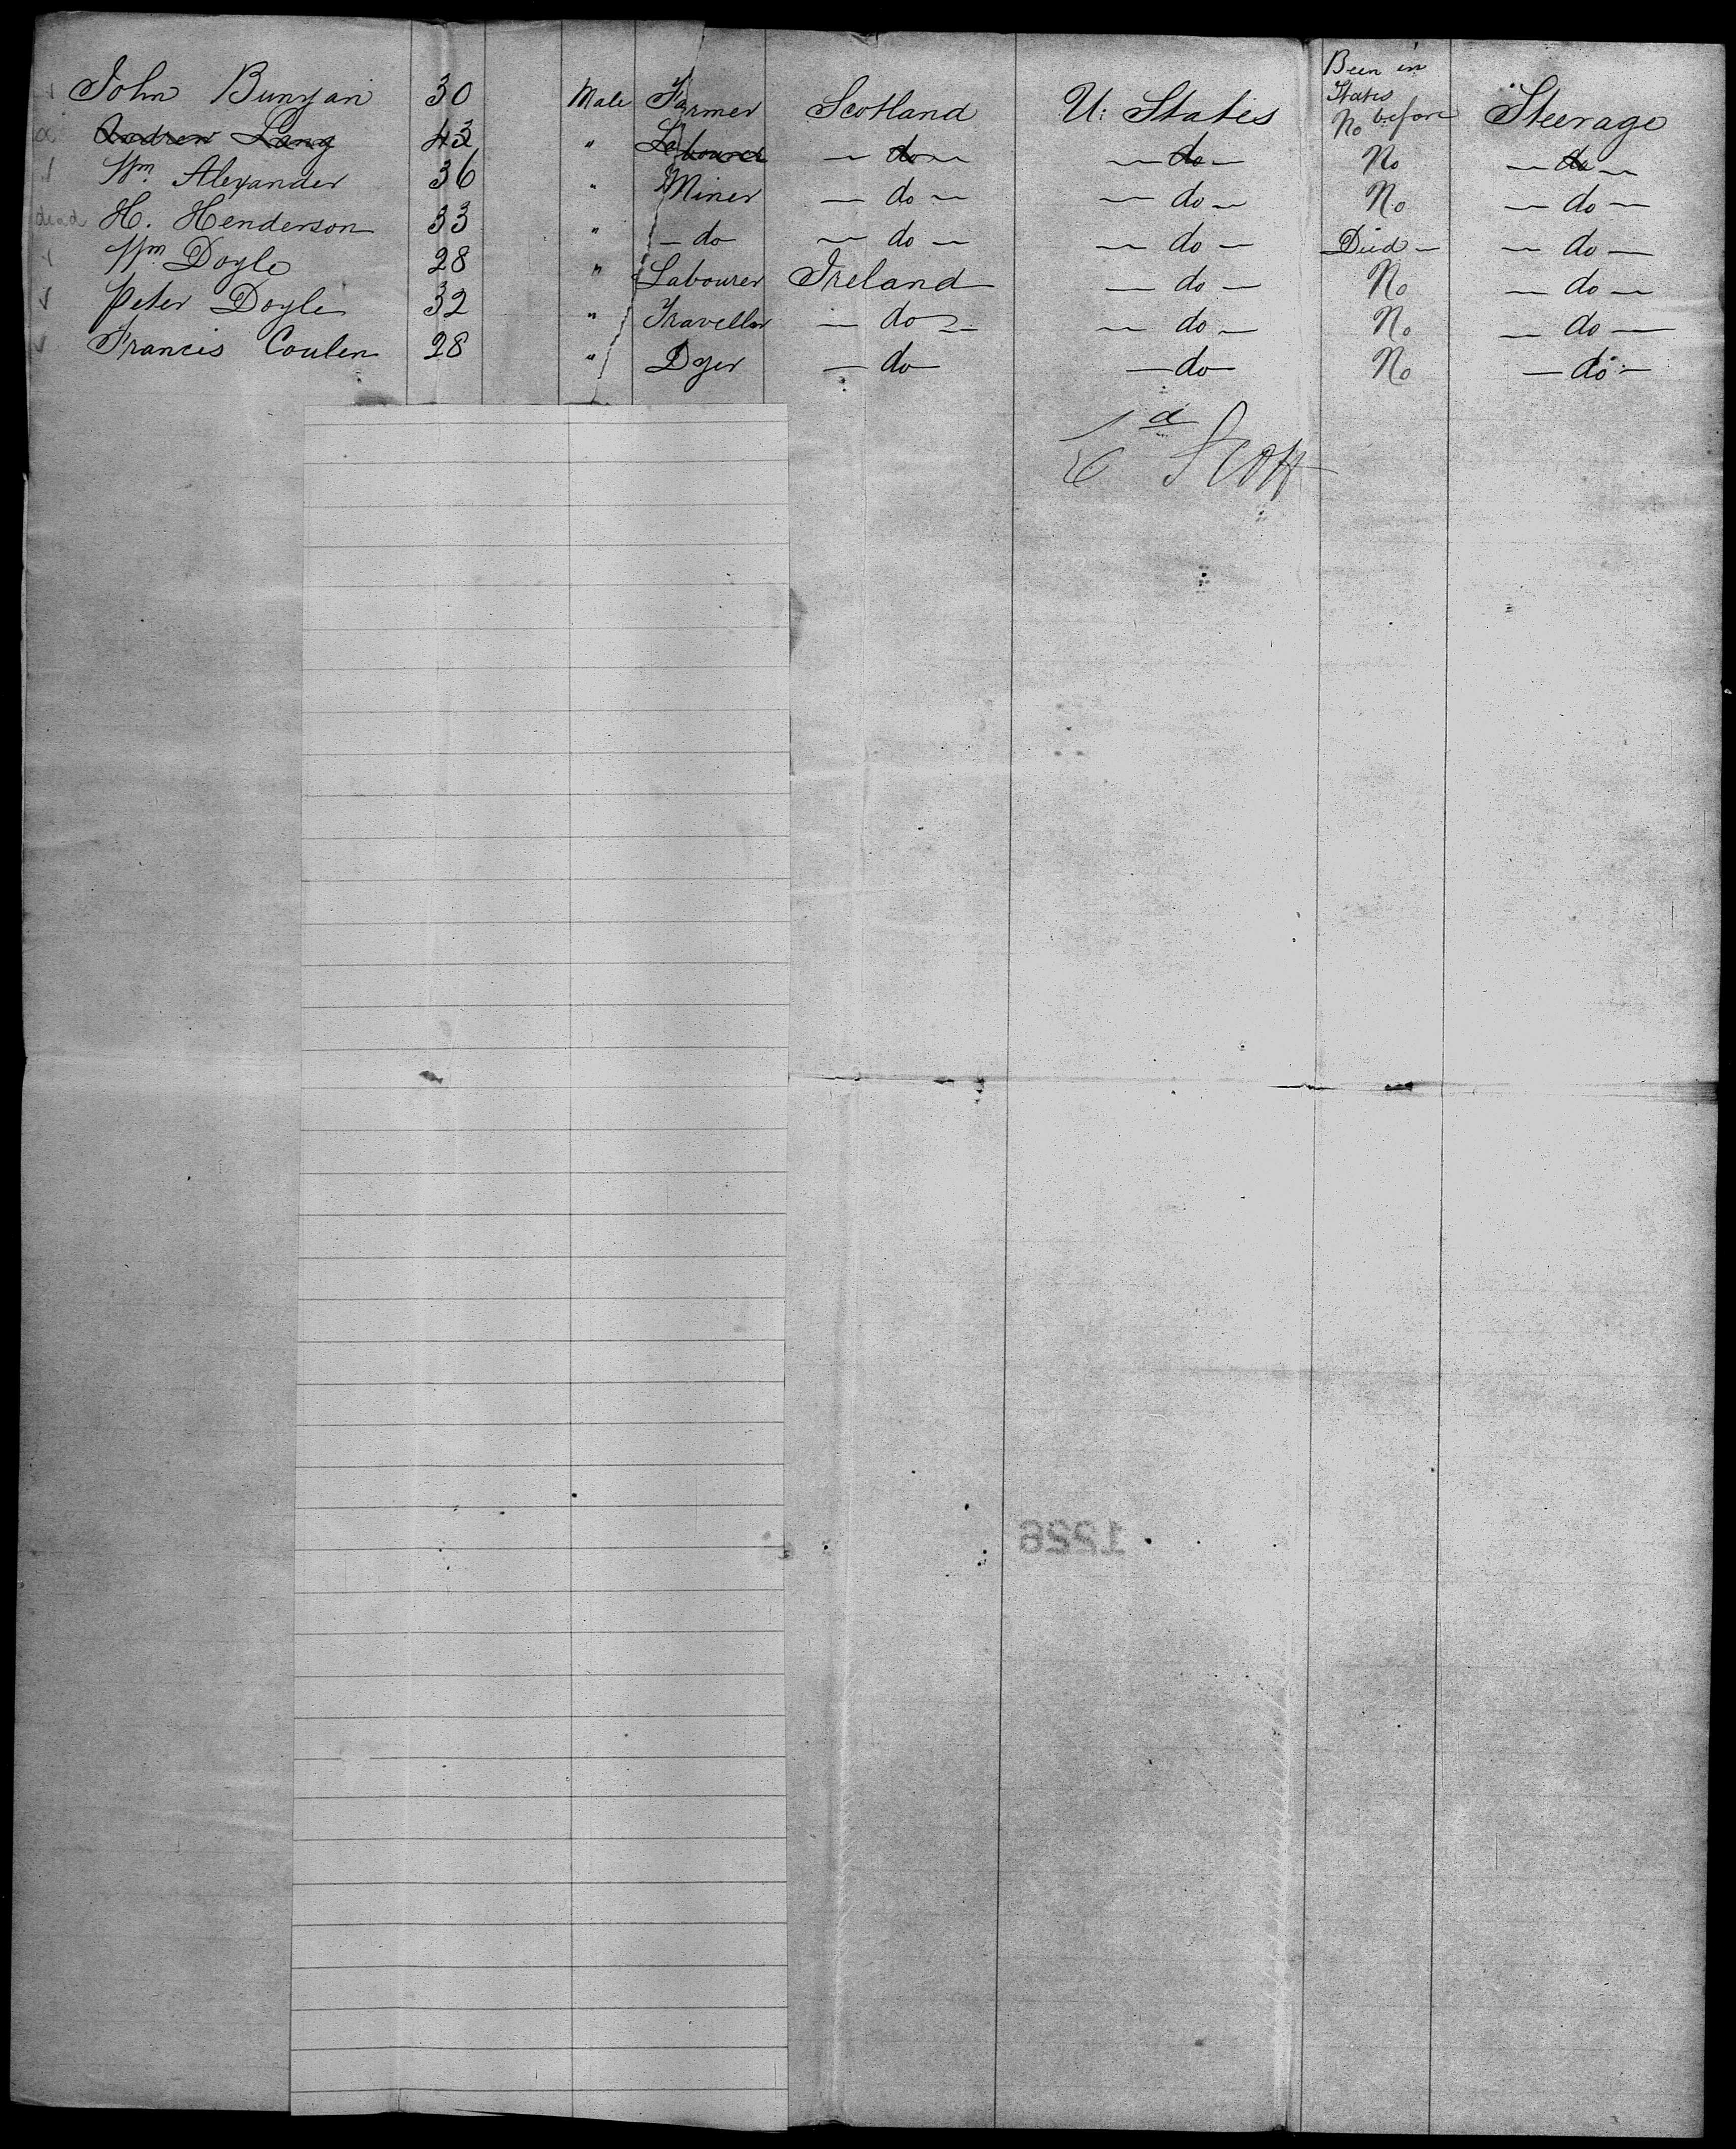 Been in
States
before
John Bunyan 30 Male Farmer Scotland U: States No Steerage
Andrew Lang 43 " Labourer — do — — do — No — do —
Wm. Alexander 36 " Miner — do — — do — No — do —
dead H. Henderson 33 " — do — do — — do — Died — — do —
Wm Doyle 28 " Labourer Ireland — do — No — do —
Peter Doyle 32 " Traveller — do — — do — No — do —
Francis Coulen 28 " Dyer — do — do — No — do —
Scott
1226